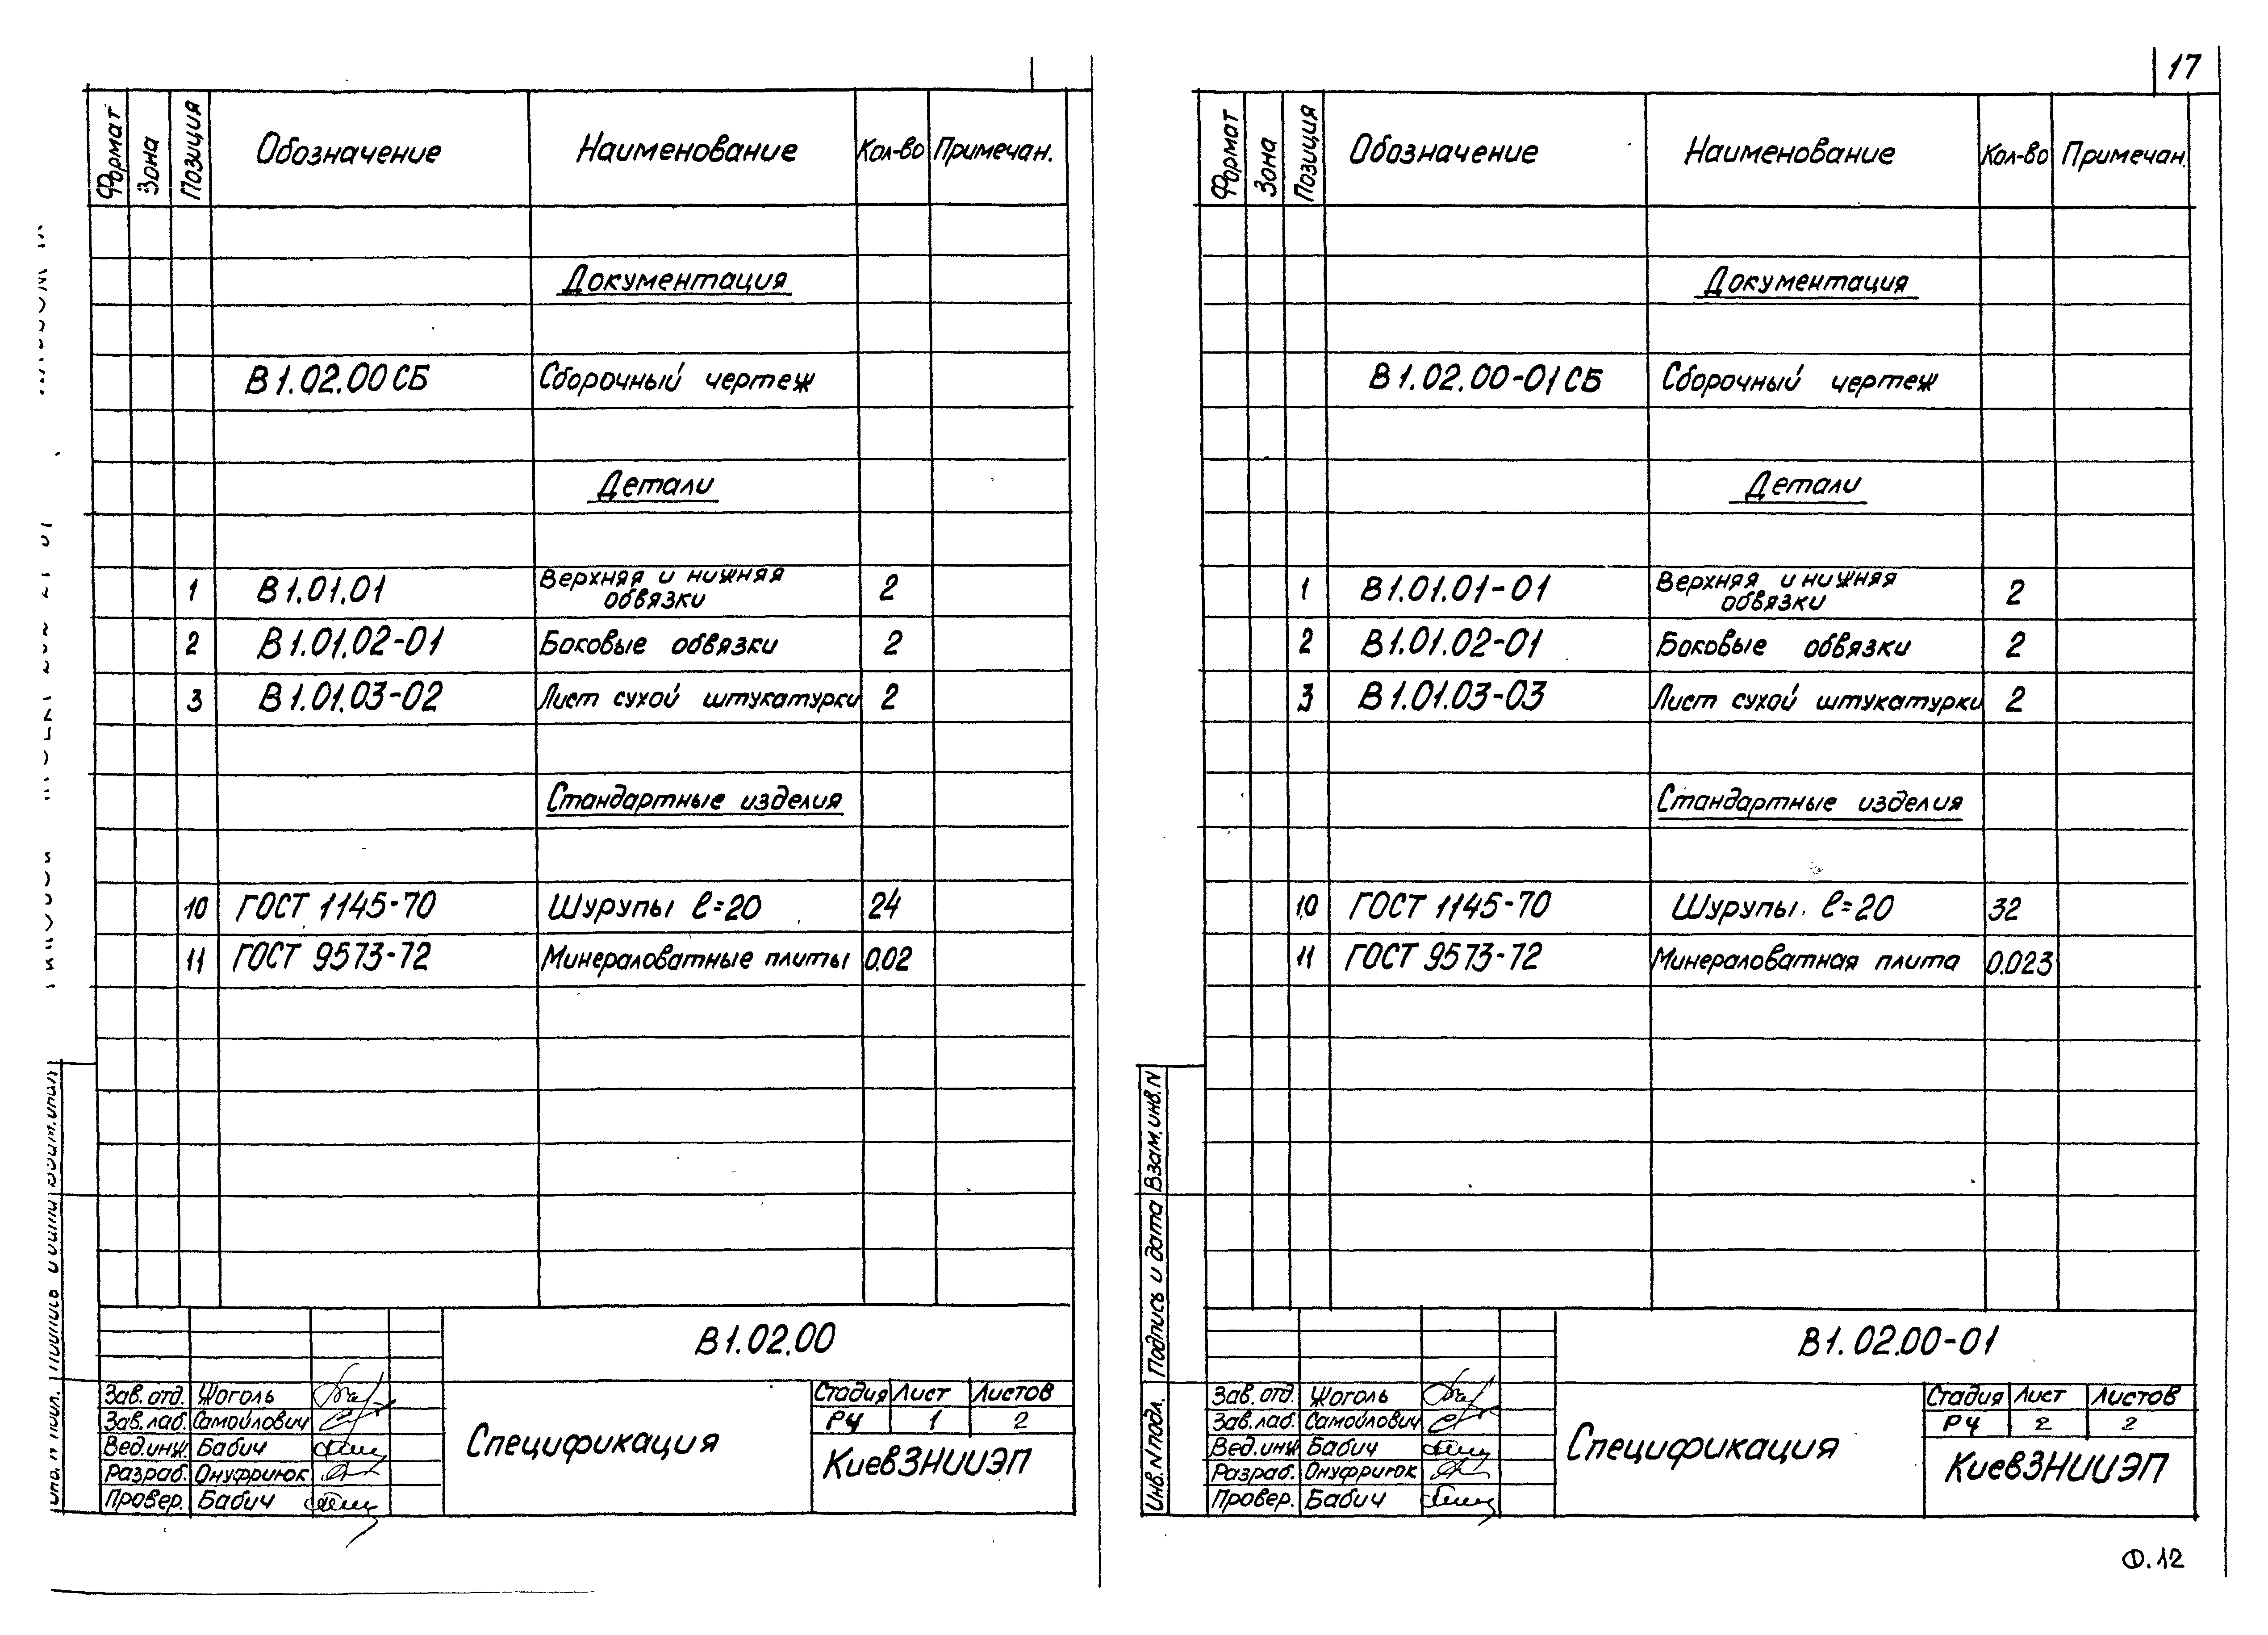 Формат Зона Позиция Обозначение Наименование Кол-во Примечан.
Документация
В1.02.00СБ Сборочный чертеж
Детали
1 В1.01.01 Верхняя и нижняя обвязки 2
2 В1.01.02-01 Боковые обвязки 2
3 В1.01.03-02 Лист сухой штукатурки 2
Стандартные изделия
10 ГОСТ 1145-70 Шурупы ℓ=20 24
11 ГОСТ 9573-72 Минераловатные плиты 0.02
В1.02.00
Зав. отд. Жоголь
Зав. лаб. Самойлович
Вед.инж. Бабич
Разраб. Онуфриюк
Провер. Бабич
Спецификация
Стадия Лист Листов
РЧ 1 2
КиевЗНИИЭП
17
Формат Зона Позиция Обозначение Наименование Кол-во Примечан.
Документация
В1.02.00-01СБ Сборочный чертеж
Детали
1 В1.01.01-01 Верхняя и нижняя обвязки 2
2 В1.01.02-01 Боковые обвязки 2
3 В1.01.03-03 Лист сухой штукатурки 2
Стандартные изделия
10 ГОСТ 1145-70 Шурупы ℓ=20 32
11 ГОСТ 9573-72 Минераловатная плита 0.023
Инв. N подл. Подпись и дата Взам.инв.N
В1.02.00-01
Зав. отд. Жоголь
Зав. лаб. Самойлович
Вед.инж Бабич
Разраб. Онуфриюк
Провер. Бабич
Спецификация
Стадия Лист Листов
РЧ 2 2
КиевЗНИИЭП
Ф.12